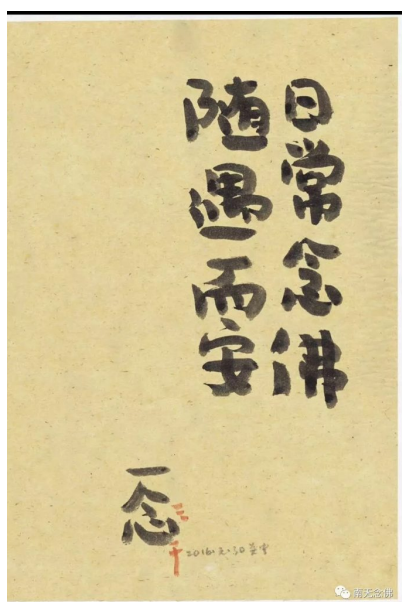 日常念佛
随遇而安
一念
三千
2016.2.30
南天念佛